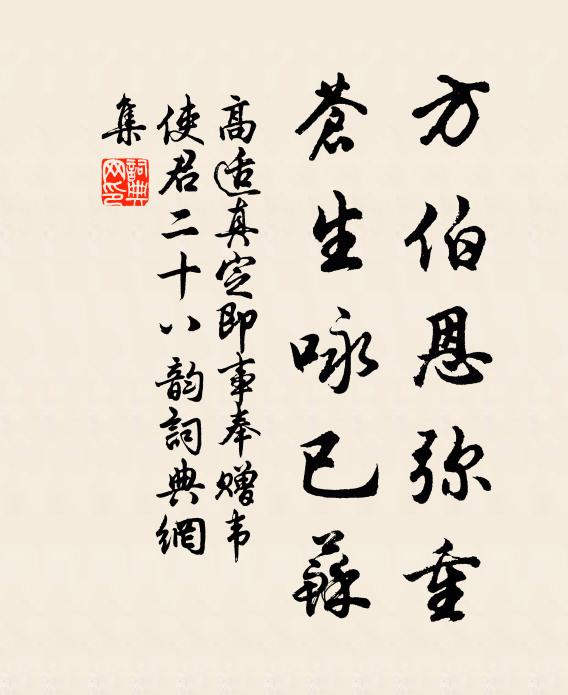 方伯恩弥重
蒼生咏已蘇
高适真定即事奉赠韦
使君二十八韵詞典網
集
詞典網印